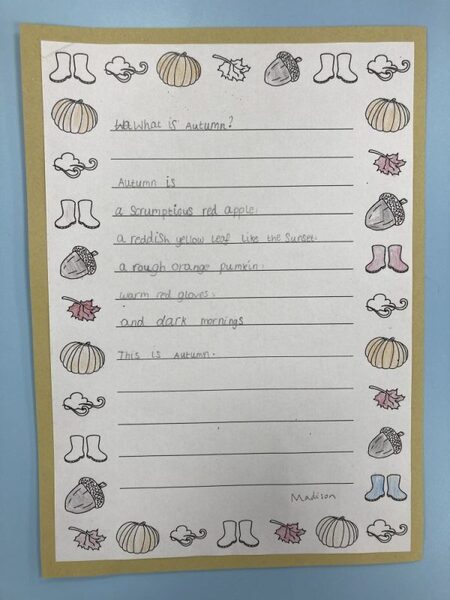 What is Autumn?
Autumn is
a scrumptious red apple.
a reddish yellow leaf like the Sunset.
a rough orange pumkin.
warm red gloves.
and dark mornings
This is Autumn.
Madison